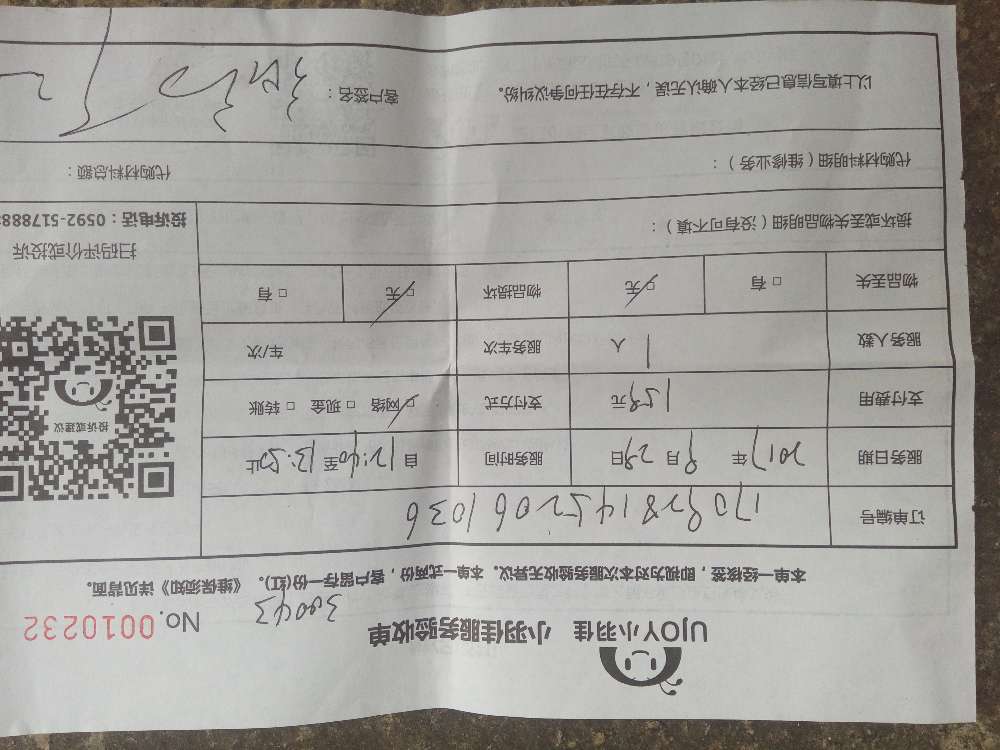 UJOY小羽佳 小羽佳服务验收单
30043 No. 0010232
本单一经核签，即视为对本次服务验收无异议。本单一式两份，客户留存一份(红)。《维保须知》详见背面。
订单编号 170828145206 1036
服务日期 2017年 8月28日 服务时间 自12:40至13:50止
支付费用 158元 支付方式 □网络 □现金 □转账
服务人数 1人 服务车次 车/次
物品丢失 □有 □无 物品损坏 □无 □有
投诉或建议
扫码评价或投诉
投诉电话：0592-517888
损坏或丢失物品明细（没有可不填）：
代购材料明细（维修业务）： 代购材料总额：
以上填写信息已经本人确认无误，不存在任何争议纠纷。 客户签名：